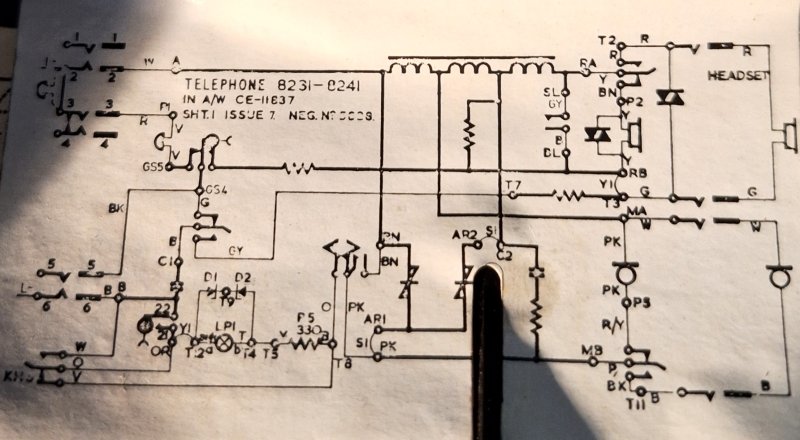 1 1
L- 2 2
A
TELEPHONE 8231-8241
IN A/W CE-11837
SHT.1 ISSUE 7. NEG. Nº
3 3
R
P1
4 4
V
V
GS5
GS4
BK
G
B
GY
C1
T2
R
R
HEADSET
RA
Y
SL
BN
GY
P2
Y
B
BL
Y
RB
T7
Y1
G
G
T3
MA
W
W
5 5
L-
6 6
B B
D1 D2
T9
BN
AR2
S1
C2
PK
PK
P5
R/Y
22
21
Y1
OR
T12
a
LP1
b
T
T4
T5
V
R5
330
O
PK
AR1
S1
PK
T8
MB
P
BK
T11
B
B
W
O
V